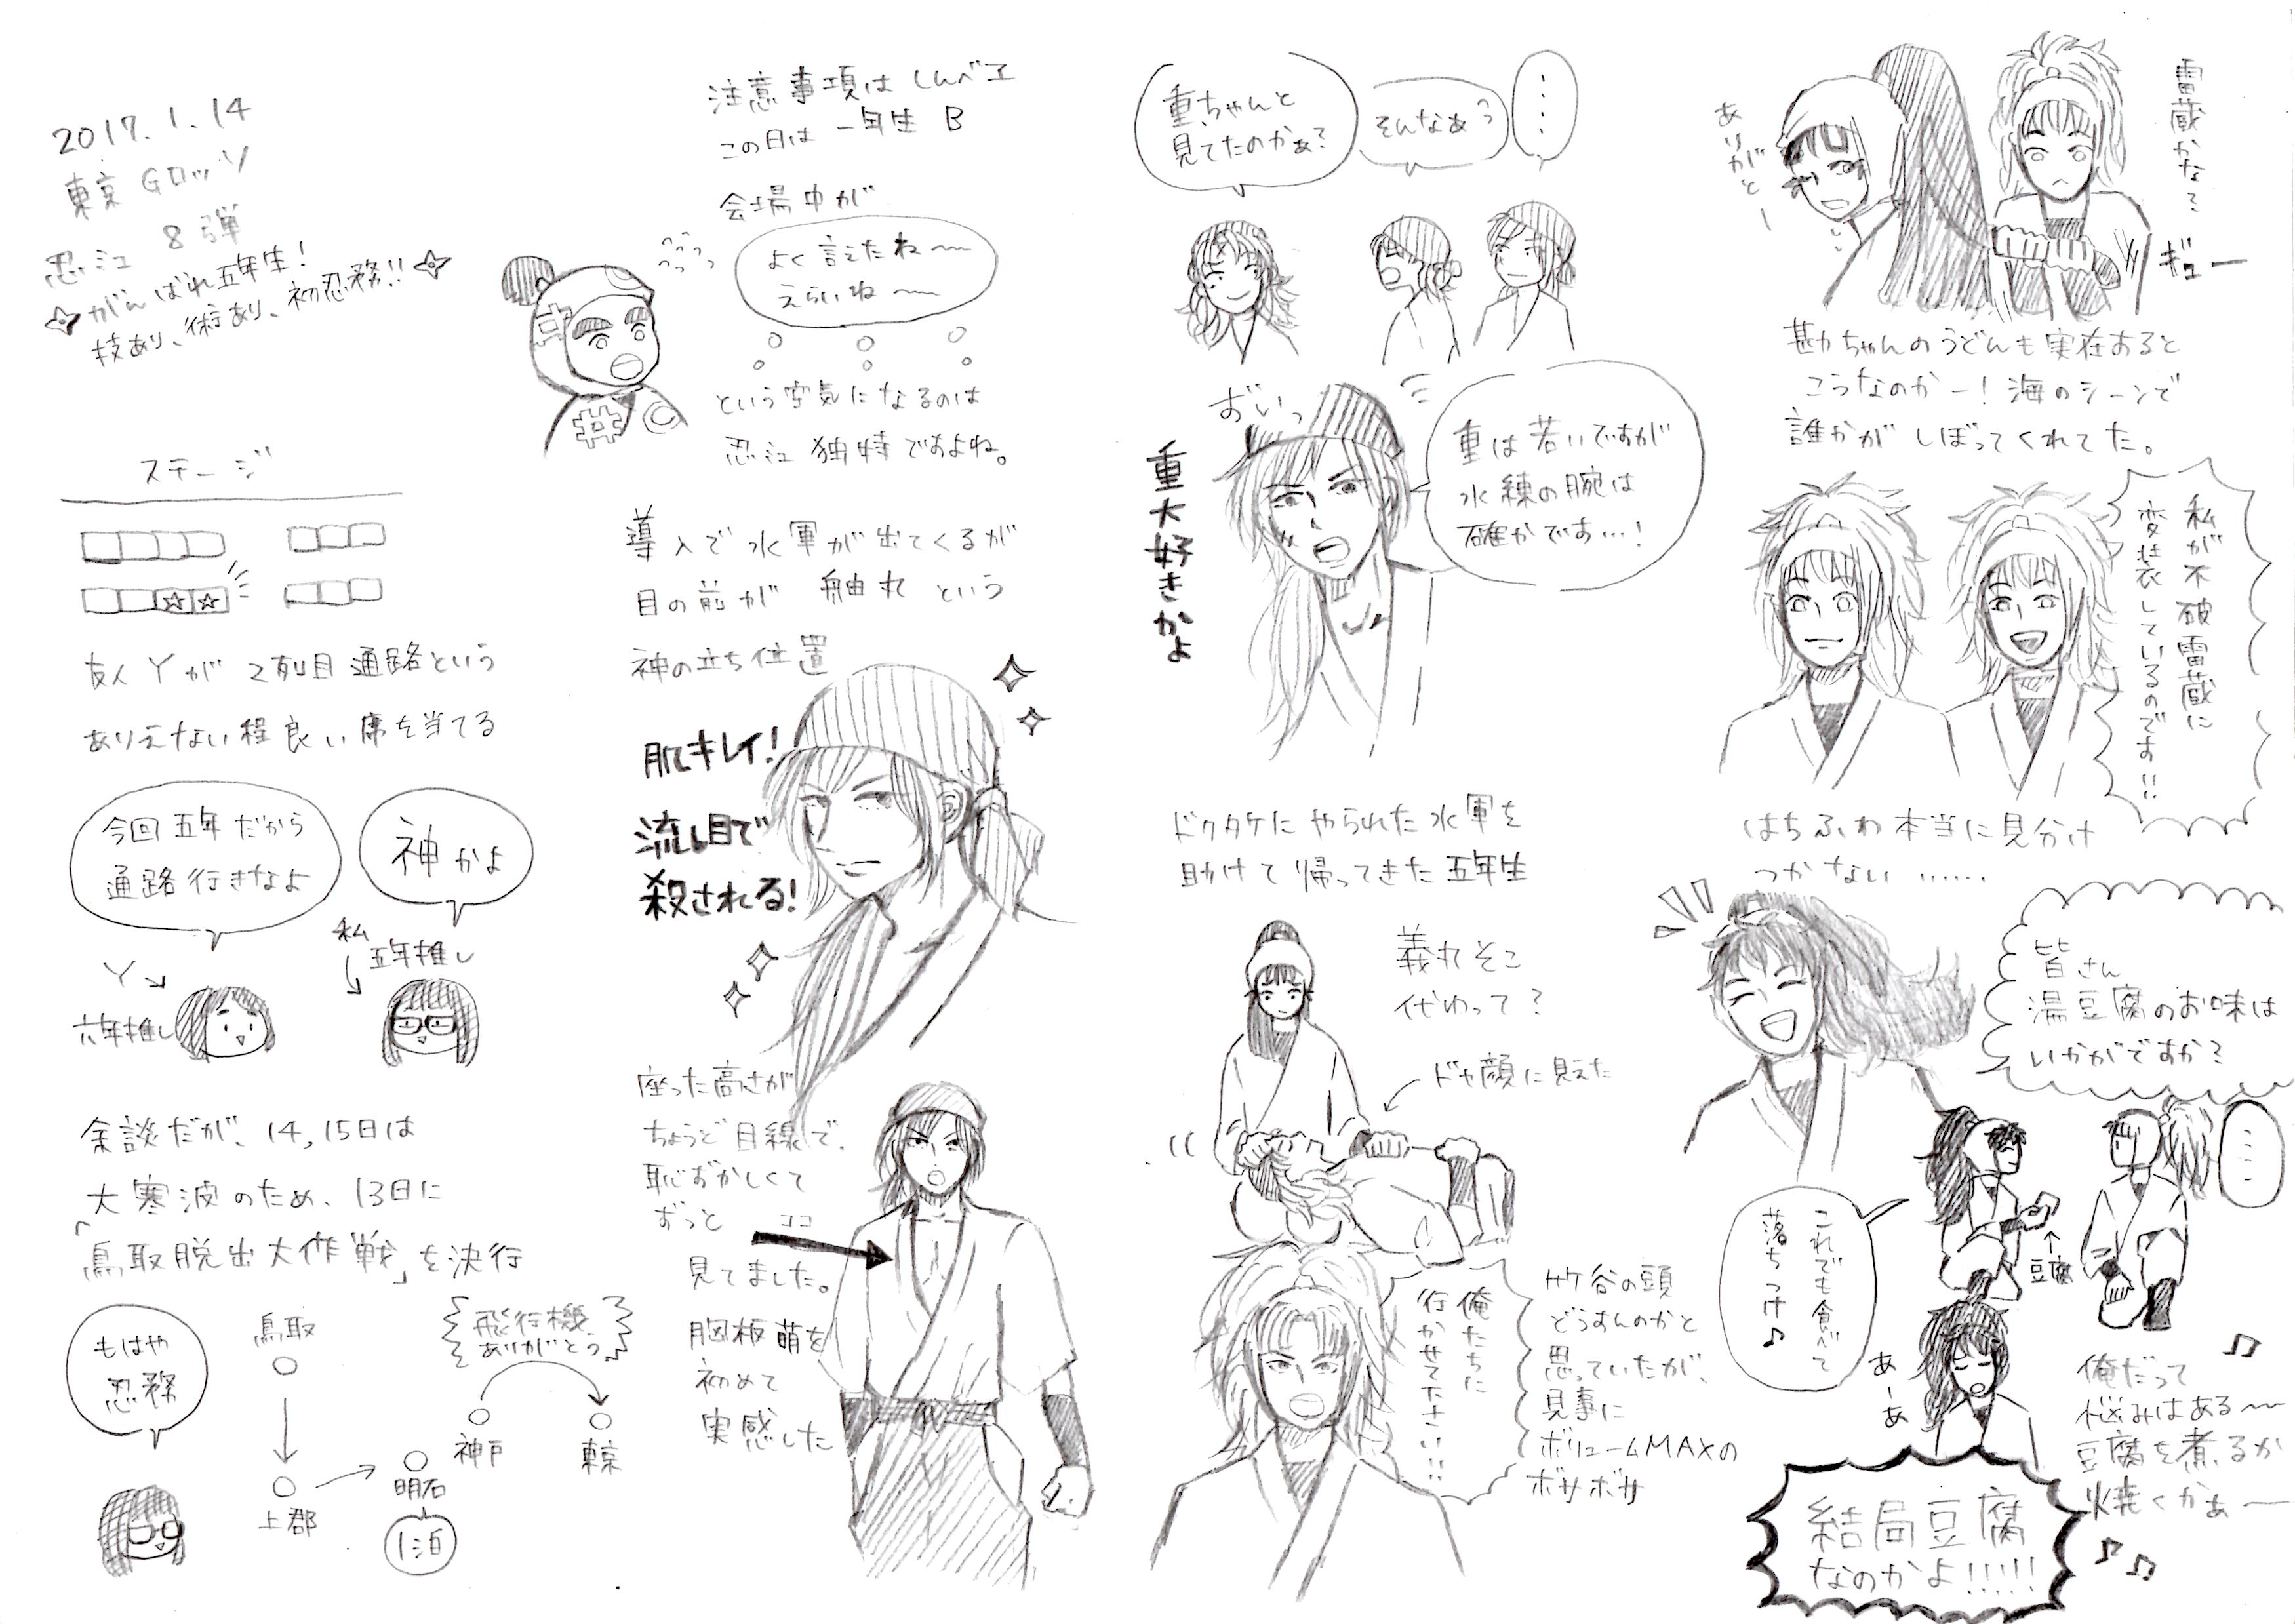 2017.1.14
東京 Gロッソ
忍ミュ 8弾
がんばれ五年生!
技あり、術あり、初忍務!!
ステージ
友人Yが2列目通路という
ありえない程良い席を当てる
今回五年だから
通路行きなよ
神かよ
Y
六年推し
私
五年推し
余談だが、14,15日は
大寒波のため、13日に
「鳥取脱出大作戦」を決行
もはや
忍務
鳥取
上郡
明石
1泊
神戸
飛行機
ありがとう
東京
注意事項はしんべヱ
この日は一年生 B
会場中が
よく言えたね〜
えらいね〜
という空気になるのは
忍ミュ独特ですよね。
導入で水軍が出てくるが
目の前が舳丸という
神の立ち位置
肌キレイ!
流し目で
殺される!
座った高さが
ちょうど目線で、
恥ずかしくて
ずっと
ココ
見てました。
胸板萌を
初めて
実感した
重ちゃんと
見てたのかぁ?
そんなぁっ
....
おいっ
重は若いですが
水練の腕は
確かです…!
重大好きかよ
ドクタケにやられた水軍を
助けて帰ってきた五年生
義丸そこ
代わって?
ドヤ顔に見えた
俺たちに
行かせて下さい!!
竹谷の頭
どうすんのかと
思っていたが、
見事に
ボリュームMAXの
ボサボサ
雷蔵かな?
ありがとー
ギュー
勘ちゃんのうどんも実在すると
こうなのかー!海のシーンで
誰かがしぼってくれてた。
私が不破雷蔵に
変装しているのです!!
はちふわ本当に見分け
つかない……
皆さん
湯豆腐のお味は
いかがですか?
....
これでも食べて
落ちつけ♪
豆腐
あーあ
俺だって
悩みはある〜
豆腐を煮るか
焼くかぁ〜
結局豆腐
なのかよ!!!!!